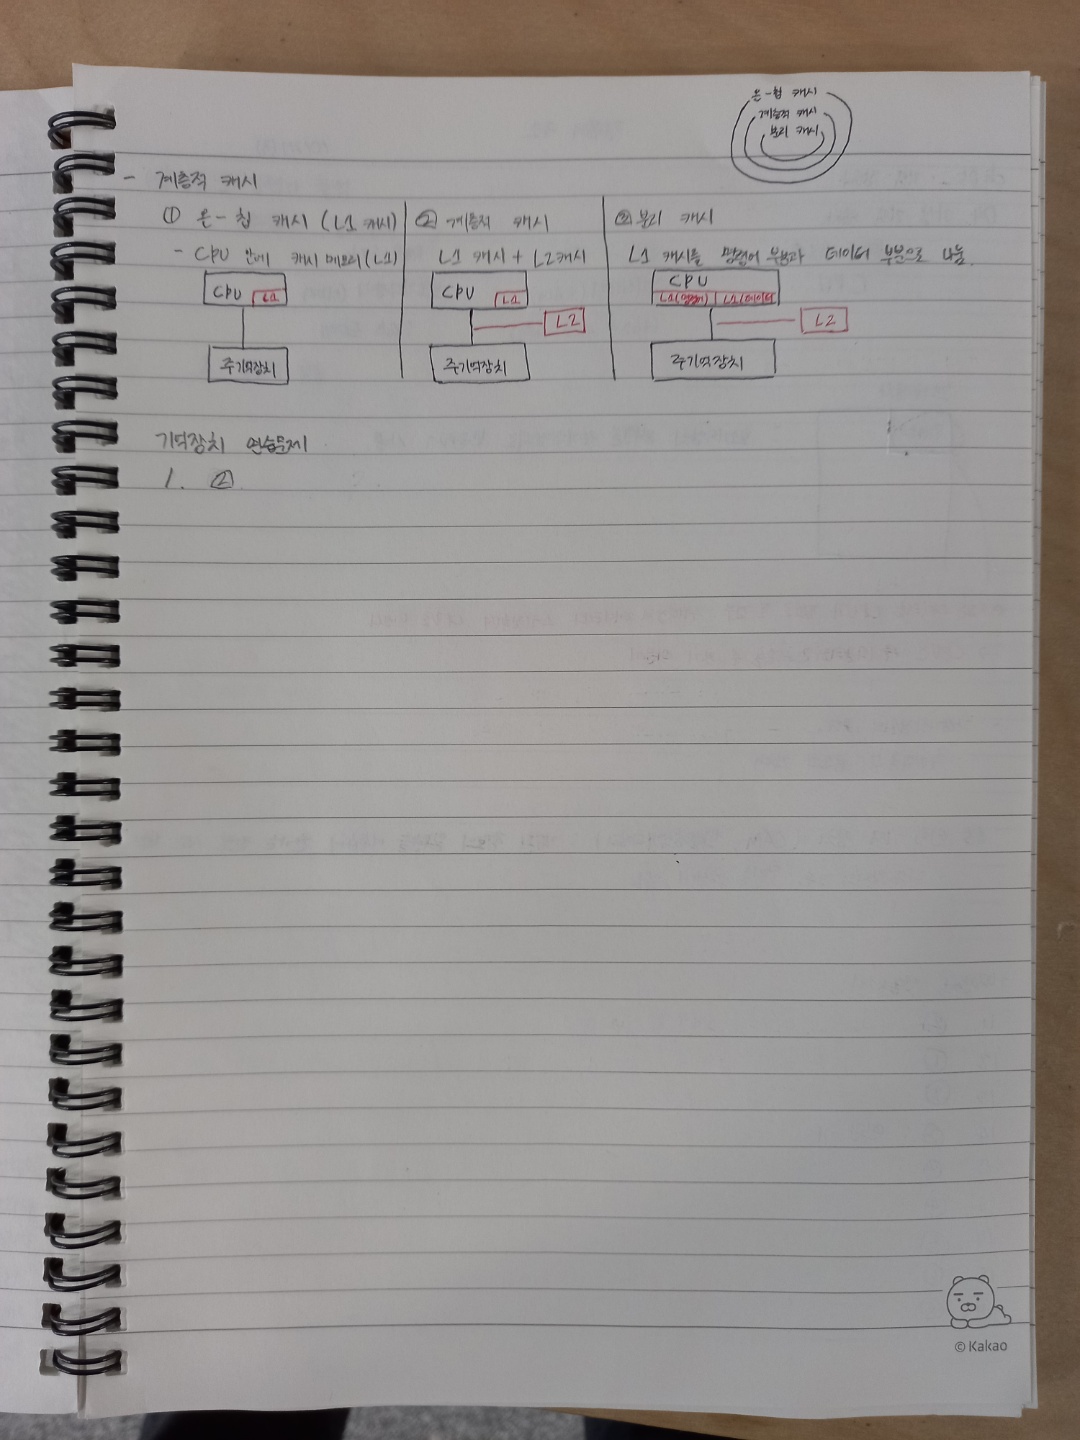 온-칩 캐시
계층적 캐시
분리 캐시
- 계층적 캐시
① 온-칩 캐시 (L1 캐시)
- CPU 안에 캐시 메모리(L1)
CPU L1
주기억장치
② 계층적 캐시
L1 캐시 + L2캐시
CPU L1
L2
주기억장치
③ 분리 캐시
L1 캐시를 명령어 부분과 데이터 부분으로 나눔.
CPU
L1(명령어) L1(데이터)
L2
주기억장치
기억장치 연습문제
1. ②
© Kakao